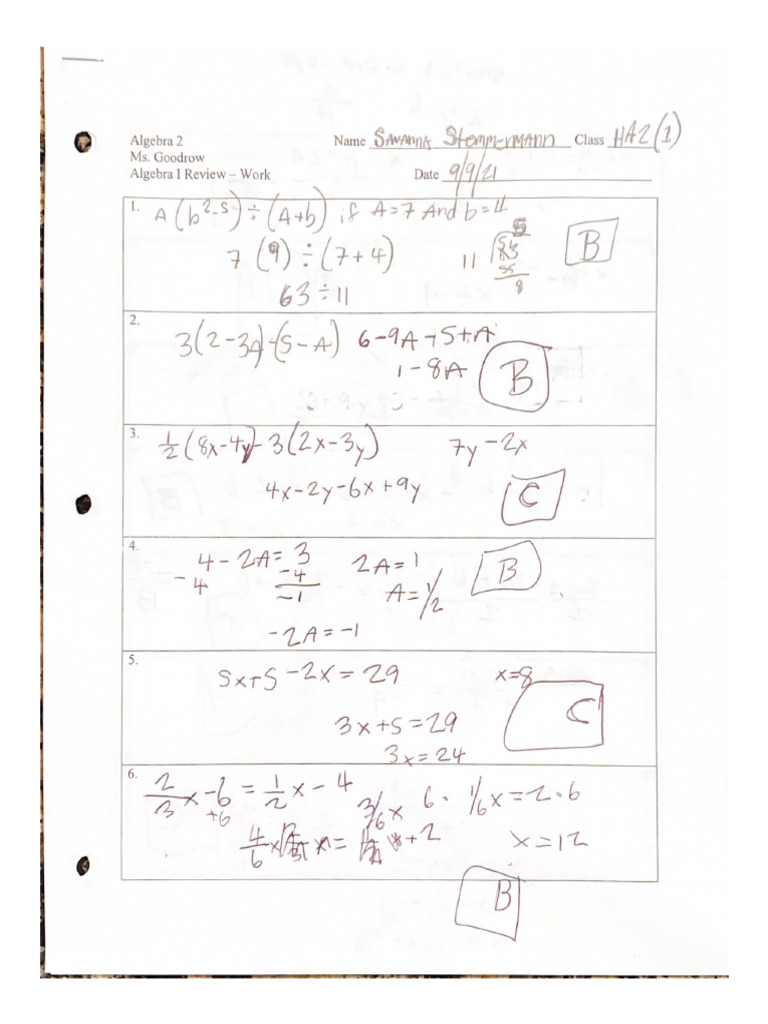 Algebra 2 Name Savanna Stemmermann Class HA2(1)
Ms. Goodrow
Algebra I Review – Work Date 9/9/21
1. A(b²-5)÷(A+b) if A=7 And b=4
7(9)÷(7+4) 11 63 B
55
63÷11 8
2. 3(2-3A)-(5-A) 6-9A-5+A
1-8A B
3. 1/2(8x-4y)-3(2x-3y) 7y-2x
4x-2y-6x+9y C
4. 4-2A=3 2A=1 B
-4 -4 A=1/2
-1
-2A=-1
5. 5x+5-2x=29 x=8
3x+5=29 C
3x=24
6. 2/3x-6=1/2x-4 3/6x 6·1/6x=2·6
+6
4/6x = +2 x=12
B